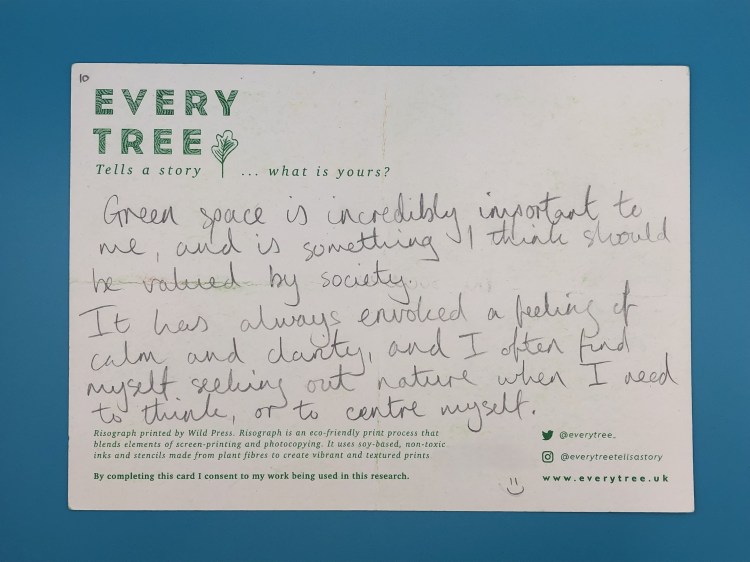 10
EVERY
TREE
Tells a story ... what is yours?
Green space is incredibly important to
me, and is something I think should
be valued by society.
It has always envoked a feeling of
calm and clarity, and I often find
myself seeking out nature when I need
to think, or to centre myself.
Risograph printed by Wild Press. Risograph is an eco-friendly print process that
blends elements of screen-printing and photocopying. It uses soy-based, non-toxic
inks and stencils made from plant fibres to create vibrant and textured prints
By completing this card I consent to my work being used in this research.
@everytree_
@everytreetellsastory
www.everytree.uk